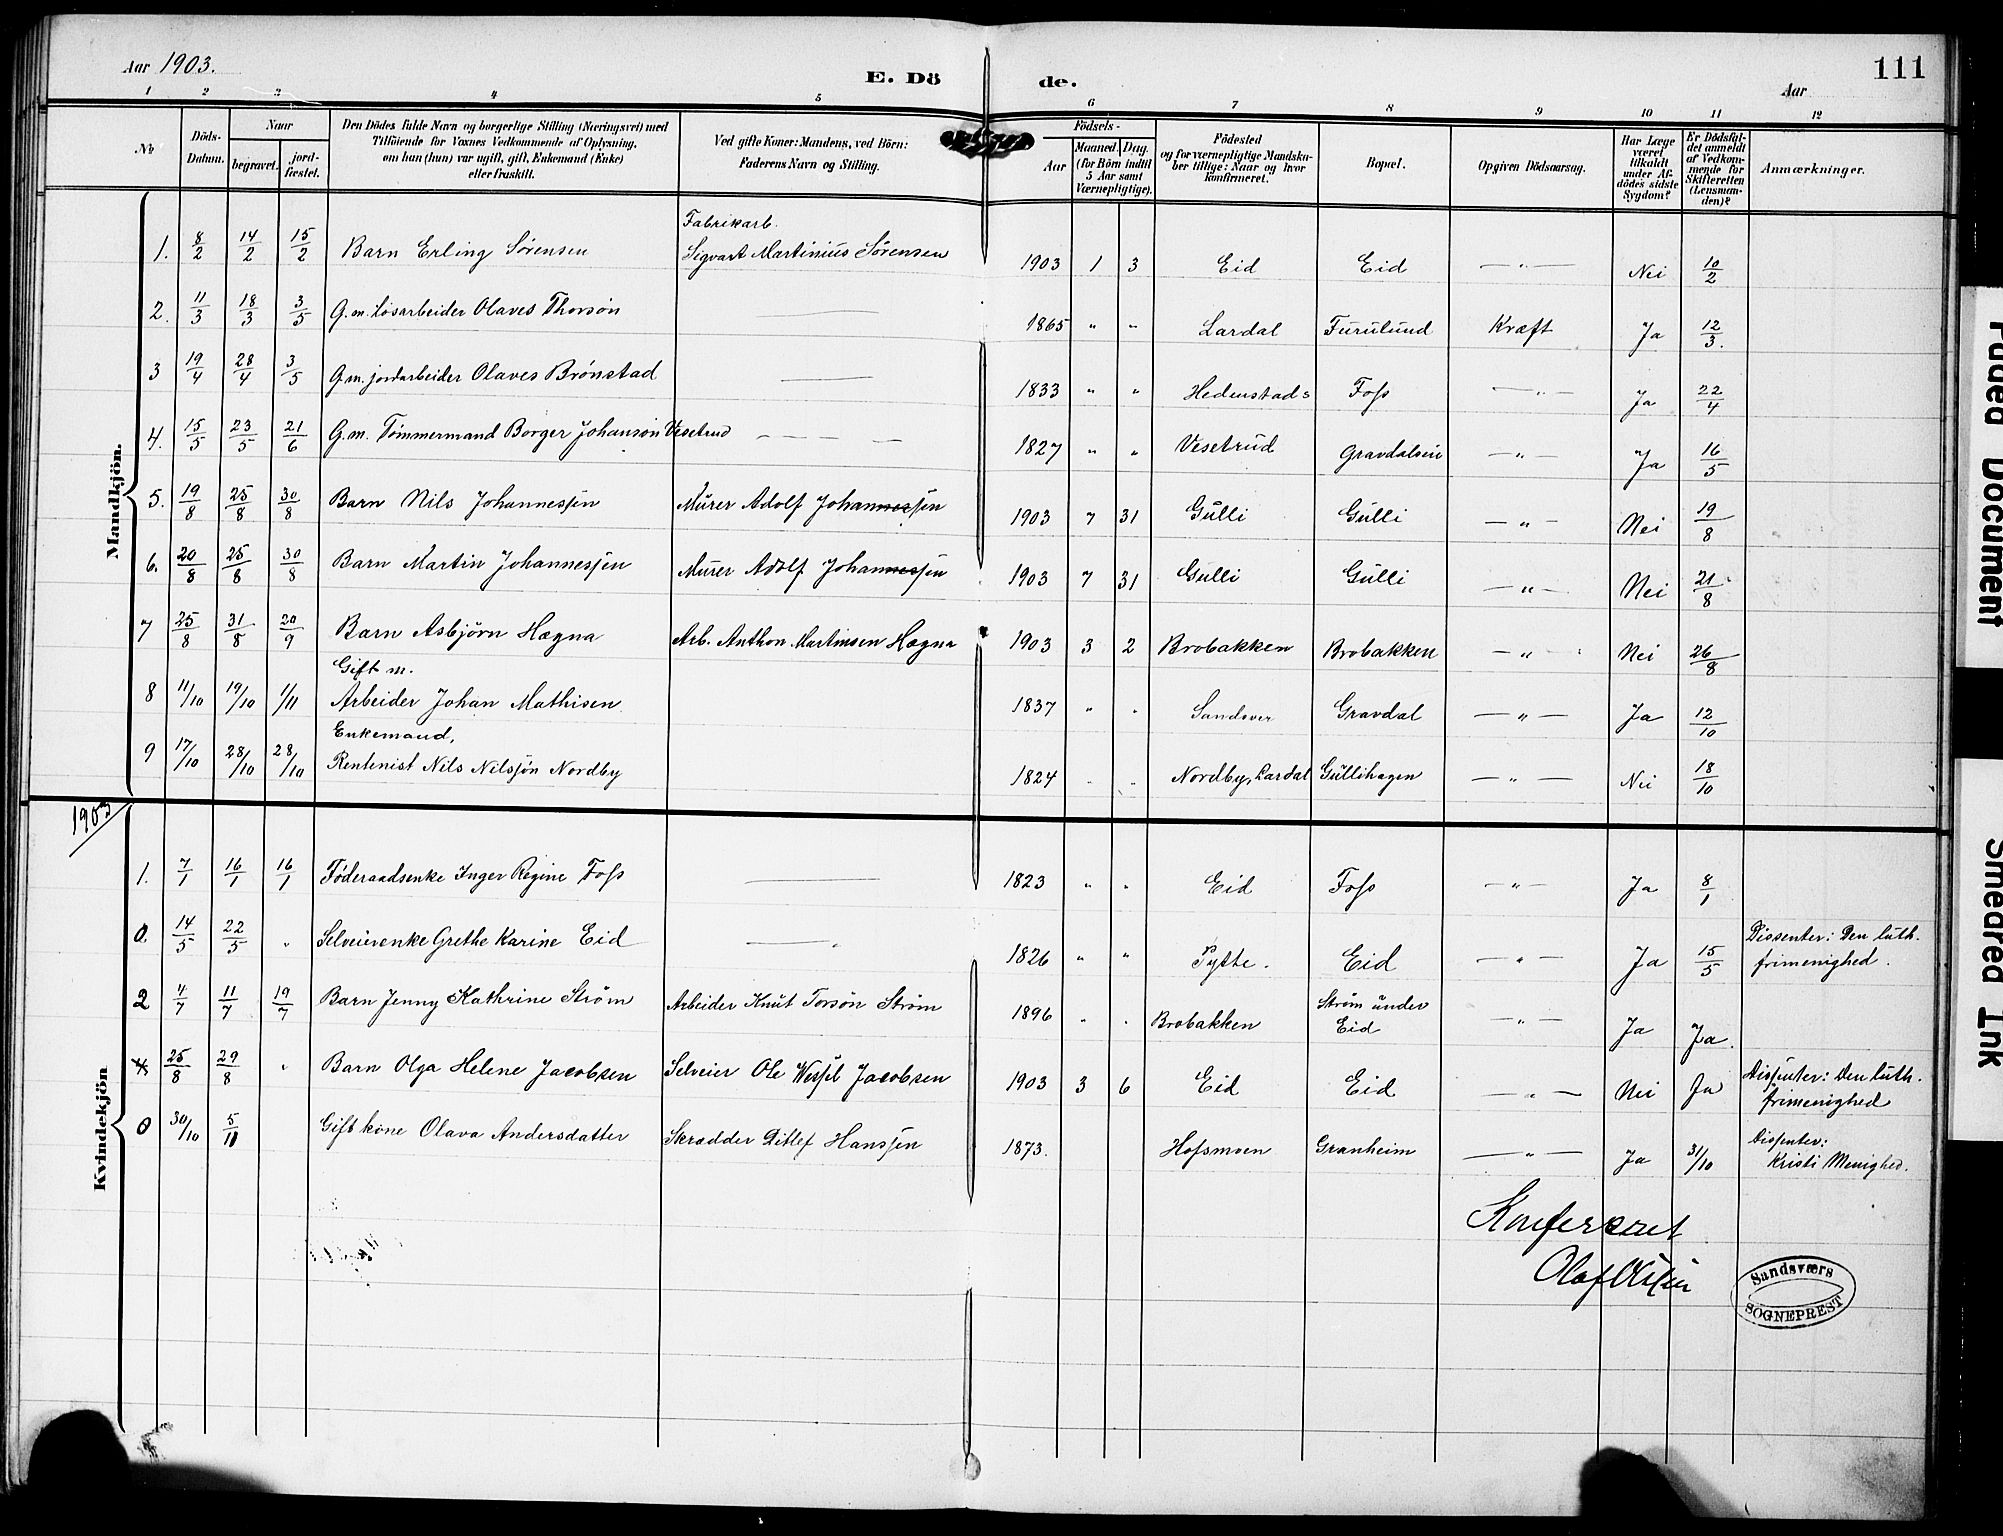 Aar 1903.
E. Dö de.
Aar
111
1 2 3 4 5 6 7 8 9 10 11 12
No
Döds-Datum.
Naar
begravet.
jordfæstet.
Den Dödes fulde Navn og borgerlige Stilling (Næringsvei) med
Tilföiende for Voxnes Vedkommende af Oplysning,
om han (hun) var ugift, gift, Enkemand (Enke)
eller fraskilt.
Ved gifte Koner: Mandens, ved Börn:
Faderens Navn og Stilling.
Födsels-
Aar
Maaned. Dag.
(for Börn indtil
5 Aar samt
Værnepligtige).
Födested
og for værnepligtige Mandska-
ber tillige: Naar og hvor
konfirmeret.
Bopæl.
Opgiven Dödsaarsag.
Har Læge
været
tilkaldt
under Af-
dödes sidste
Sygdom?
Er Dödsfal-
det anmeldt
af Vedkom-
mende for
Skifteretten
(Lensman-
den)?
Anmærkninger.
Mandkjön.
Fabrikarb.
1. 8/2 14/2 15/2 Barn Erling Sørensen Sigvart Martinius Sørensen 1903 1 3 Eid Eid — " — Nei 10/2
2. 11/3 18/3 3/5 G. m. Løsarbeider Olaves Thorsøn — 1865 " " Lardal Furulund Kræft Ja 12/3.
3 19/4 28/4 3/5 G. m. jordarbeider Olaves Brønstad — 1833 " " Hedenstad Foss — " — Ja 22/4
4. 15/5 23/5 21/6 G. m. Tømmermand Borger Johanson Vesetrud — — — — 1827 " " Vesetrud Gravdalseie — " — Ja 16/5
5. 19/8 25/8 30/8 Barn Nils Johannessen Murer Adolf Johannessen 1903 7 31 Gulli Gulli — " — Nei 19/8
6. 20/8 25/8 30/8 Barn Martin Johannessen Murer Adolf Johannessen 1903 7 31 Gulli Gulli — " — Nei 21/8
7 25/8 31/8 20/9 Barn Asbjørn Hægna Arb. Anthon Martinsen Hægna 1903 3 2 Brobakken Brobakken — " — Nei 26/8
Gift m.
8 11/10 19/10 1/11 Arbeider Johan Mathisen 1837 " " Sandsver Gravdal — " — Ja 12/10
Enkemand,
9 17/10 28/10 28/10 Rentenist Nils Nilssøn Nordby 1824 " " Nordby, Lardal Gullihagen — " — Nei 18/10
1903
Kvindekjön
1. 7/1 16/1 16/1 Føderaadsenke Inger Regine Foss — 1823 " " Eid Foss — " — Ja 8/1
0. 14/5 22/5 " Selveierenke Grethe Karine Eid — " 1826 " " Pytte. Eid — " — Ja 15/5 Dissenter: Den luth.
frimenighed.
2 4/7 11/7 19/7 Barn Jenny Kathrine Strøm Arbeider Knut Torsøn Strøm 1896 " " Brobakken Strøm under
Eid — " — Ja Ja.
25/8 29/8 " Barn Olga Helene Jacobsen Selveier Ole Wessel Jacobsen 1903 3 6 Eid Eid — " — Nei Ja Dissenter: Den luth.
frimenighed
0 30/10 5/11 Gift kone Olava Andersdatter Skrædder Ditlef Hanssen 1873. Hofsmoen Granheim — " — Ja 31/10 Dissenter:
Kristi Menighed.
Konfereret
Olaf
Sandsværs
SOGNEPREST
Faded Document
Smeared Ink